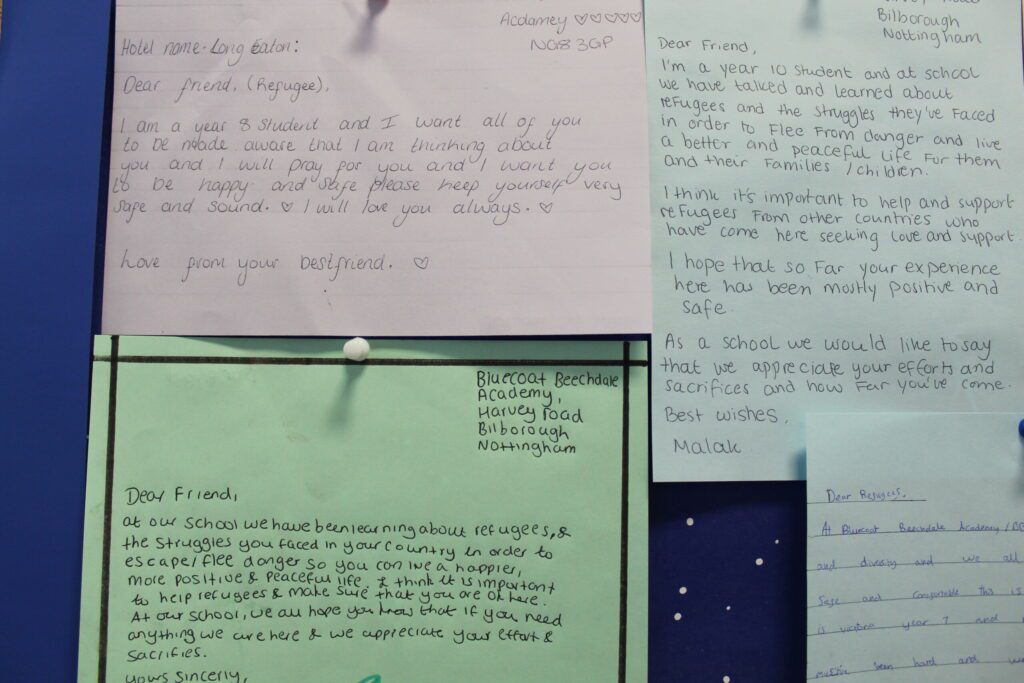 Acdamey ♡♡♡♡♡
NG8 3GP
Hotel name - Long Eaton:
Dear friend, (Refugee),
I am a year 8 student and I want all of you
to be made aware that I am thinhing about
you and I will pray for you and I want you
to be happy and safe please heep yourself very
safe and sound. ♡ I will love you always. ♡
Love from your bestfriend. ♡
Bilborough
Nottingham
Dear Friend,
I'm a year 10 student and at school
we have talked and learned about
refugees and the struggles they've faced
in order to flee from danger and live
a better and peaceful life for them
and their families / children.
I think it's important to help and support
refugees from other countries who
have come here seeking love and support.
I hope that so far your experience
here has been mostly positive and
safe.
As a school we would like to say
that we appreciate your efforts and
sacrifices and how far you've come.
Best wishes,
Malak
Bluecoat Beechdale
Academy,
Harvey road
Bilborough
Nottingham
Dear Friend,
at our school we have been learning about refugees, &
the struggles you faced in your country in order to
escape/flee danger so you can live a happier,
more positive & peaceful life. I think it is important
to help refugees & make sure that you are ok here.
At our school, we all hope you know that if you need
anything we are here & we appreciate your effort &
sacrifies.
yours sincerly,
Dear Refugees,
At Bluecoat Beechdale Academy
and diversity and we all
safe and comfortable this is
is victoria year 7 and
been hard and